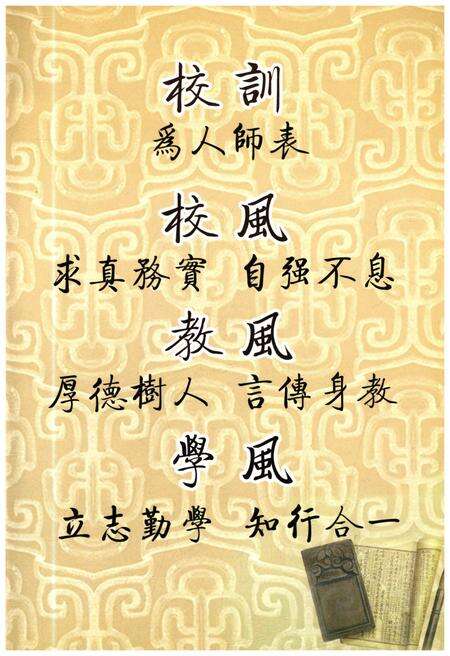 校訓
爲人師表
校風
求真務實 自强不息
教風
厚德樹人 言傳身教
學風
立志勤學 知行合一